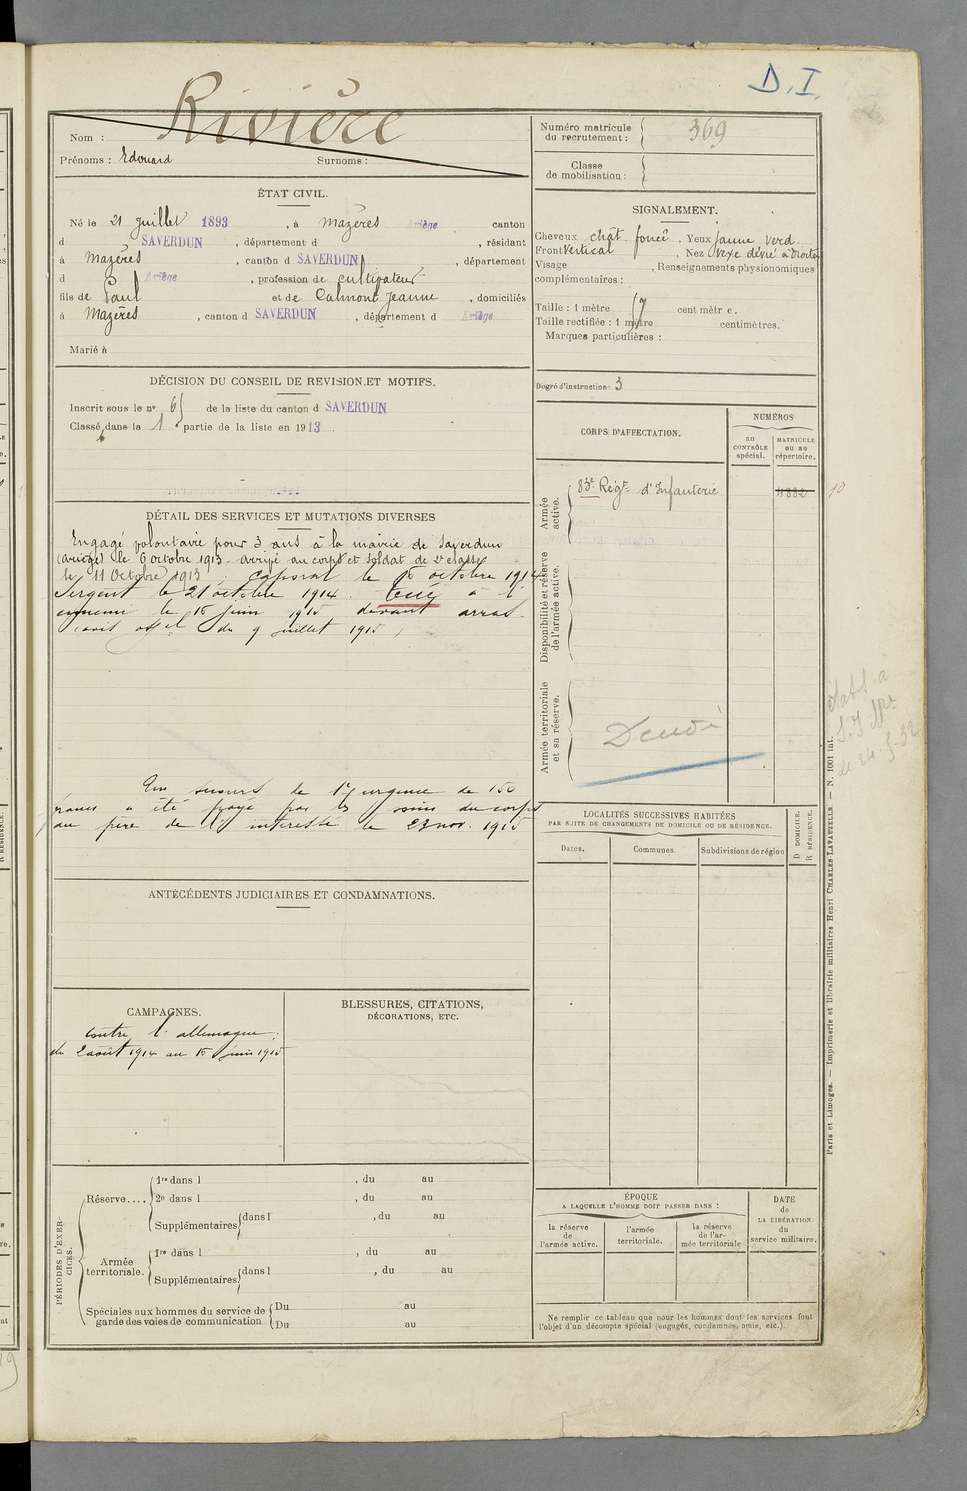 D.I.
Rivière
Nom :
Prénoms : Edouard Surnoms :
Numéro matricule du recrutement : 369
Classe de mobilisation :
ÉTAT CIVIL.
Né le 21 juillet 1893, à Mazères Ariège canton
d SAVERDUN, département d , résidant
à Mazères, canton d SAVERDUN, département
d Ariège, profession de cultivateur
fils de Paul et de Calmont Jeanne, domiciliés
à Mazères, canton d SAVERDUN, département d Ariège
Marié à
SIGNALEMENT.
Cheveux chât. foncé, Yeux jaune verd.
Front Vertical, Nez dévié à droite
Visage , Renseignements physionomiques
complémentaires :
Taille : 1 mètre centimètre.
Taille rectifiée : 1 mètre centimètres.
Marques particulières :
Degré d'instruction : 3
DÉCISION DU CONSEIL DE REVISION ET MOTIFS.
Inscrit sous le n° 65 de la liste du canton d SAVERDUN
Classé dans la 1 partie de la liste en 1913.
DÉTAIL DES SERVICES ET MUTATIONS DIVERSES
Engagé volontaire pour 3 ans à la mairie de Saverdun
(Ariège) le 6 octobre 1913 arrivé au corps et soldat de 2e classe
le 11 Octobre 1913. Caporal le octobre 1914
Sergent le 21 octobre 1914. Tué à l'
ennemi le 16 juin 1915 devant arras.
(avis off el du 9 juillet 1915)
Un secours de 1re urgence de 150
francs a été payé par les soins du corps
au père de l'intéressé le 23 nov. 1915
ANTÉCÉDENTS JUDICIAIRES ET CONDAMNATIONS.
CAMPAGNES.
Contre l'allemagne
du 2 août 1914 au 16 juin 1915
BLESSURES, CITATIONS,
DÉCORATIONS, ETC.
PÉRIODES D'EXERCICES.
Réserve....
1re dans l , du au
2e dans l , du au
Supplémentaires dans l , du au
Armée territoriale.
1re dans l , du au
Supplémentaires dans l , du au
Spéciales aux hommes du service de
garde des voies de communication
Du au
Du au
CORPS D'AFFECTATION.
NUMÉROS
au CONTRÔLE spécial.
MATRICULE ou au répertoire.
Armée active.
83e Régt d'Infanterie
10
Disponibilité et réserve de l'armée active.
Armée territoriale et sa réserve.
LOCALITÉS SUCCESSIVES HABITÉES
PAR SUITE DE CHANGEMENTS DE DOMICILE OU DE RÉSIDENCE.
Dates. Communes. Subdivisions de région
D DOMICILE.
R RÉSIDENCE.
ÉPOQUE
A LAQUELLE L'HOMME DOIT PASSER DANS :
la réserve de l'armée active.
l'armée territoriale.
la réserve de l'armée territoriale
DATE de LA LIBÉRATION du service militaire.
Ne remplir ce tableau que pour les hommes dont les services font
l'objet d'un décompte spécial (engagés, condamnés, omis, etc.).
Paris et Limoges. — Imprimerie et librairie militaires Henri CHARLES-LAVAUZELLE — N. 1001 int.